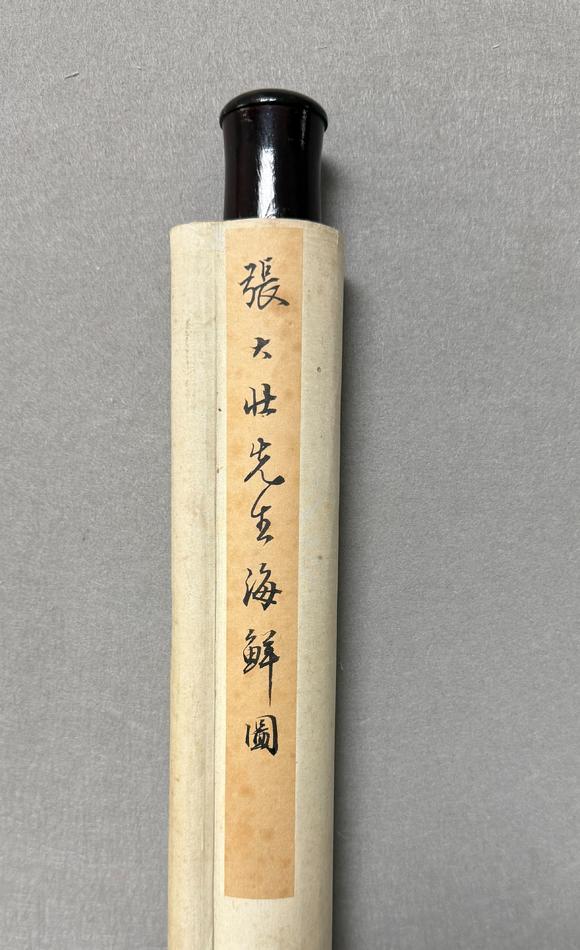 張大壯先生海鮮圖